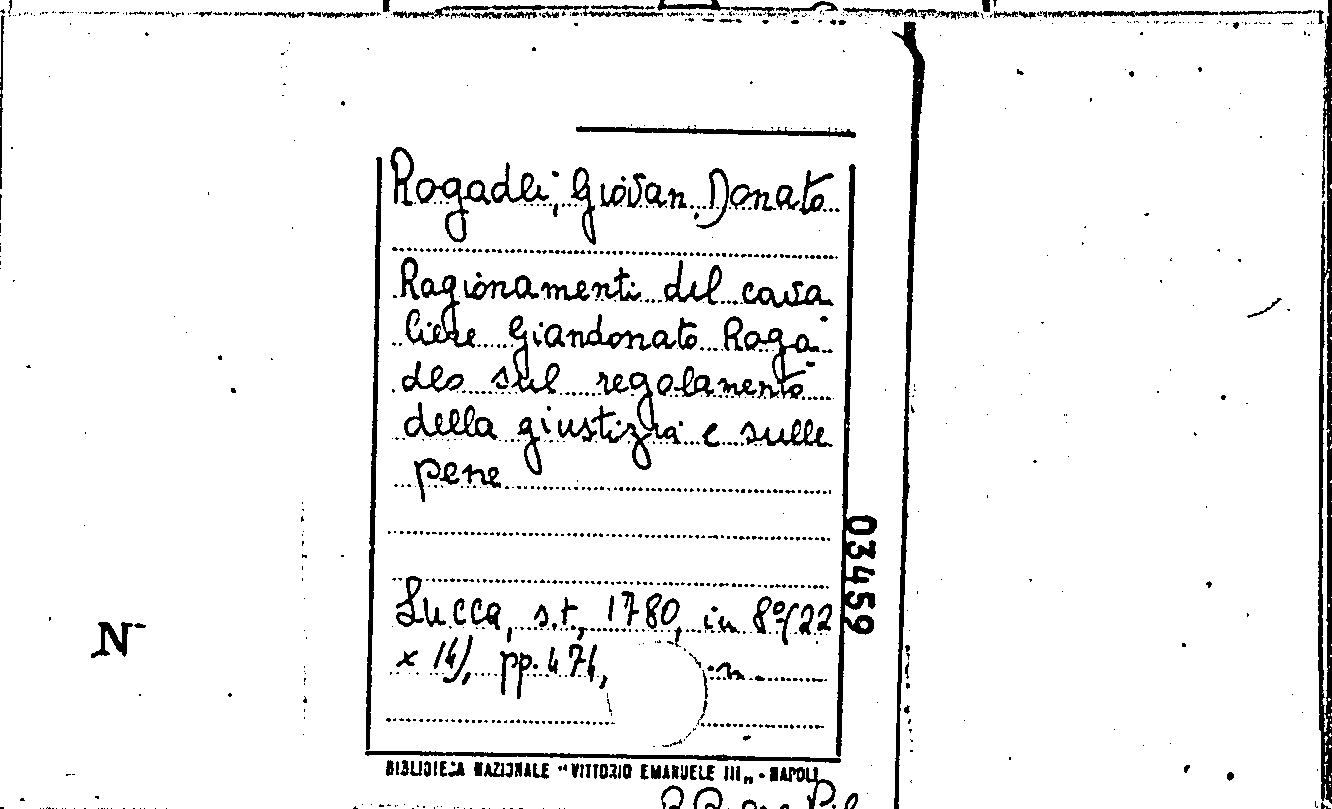 Rogadei, Giovan Donato
Ragionamenti del cava
liere Giandonato Roga
deo sul regolamento
della giustizia e sulle
pene
03459
Lucca, s.t., 1780, in 8º(22
N-
x 14), pp. 474,
BIBLIOTECA NAZIONALE "VITTORIO EMANUELE III" - NAPOLI